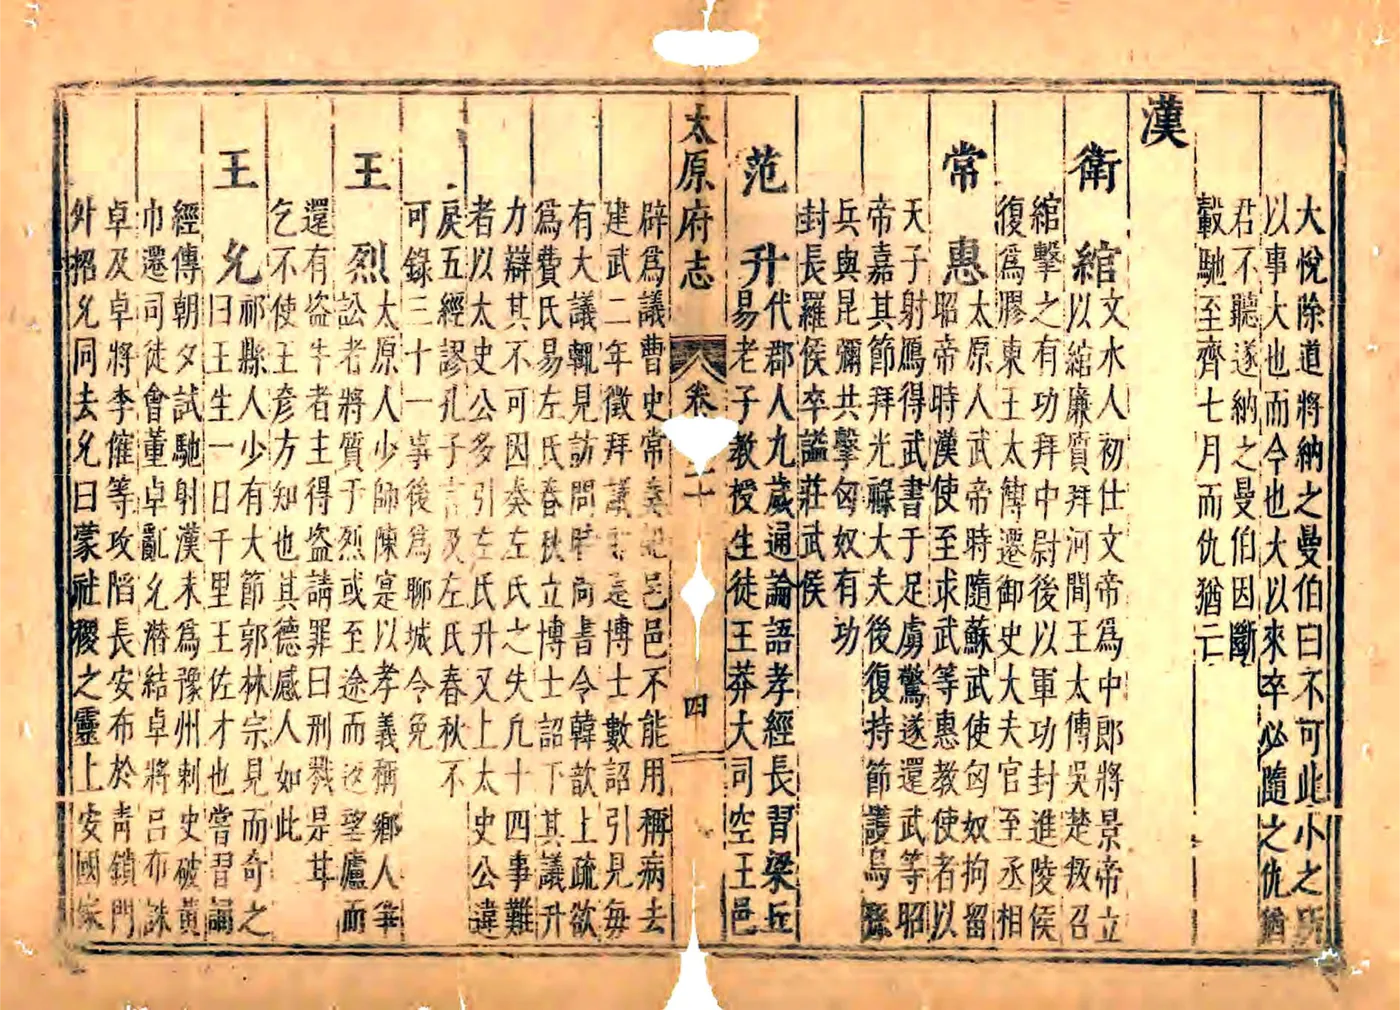 大悅除道將納之曼伯曰不可此小之所
以事大也而今也大以來卒必隨之仇猶
君不聽遂納之曼伯因斷
轂馳至齊七月而仇猶亡
漢
衛綰文水人初仕文帝爲中郎將景帝立
以綰廉質拜河間王太傅吳楚叛召
綰擊之有功拜中尉後以軍功封進陵侯
復爲膠東王太傅遷御史大夫官至丞相
常惠太原人武帝時隨蘇武使匈奴拘留
昭帝時漢使至求武等惠教使者以
天子射鴈得武書于足虜驚遂還武等昭
帝嘉其節拜光祿大夫後復持節護烏孫
兵與昆彌共擊匈奴有功
封長羅侯卒謚莊武侯
范升代郡人九歲通論語孝經長習梁丘
易老子教授生徒王莽大司空王邑
太原府志
卷二十
四
辟爲議曹史常奏記邑邑不能用稱病去
建武二年徵拜議郎遷博士數詔引見每
有大議輒見訪問時尚書令韓歆上疏欲
爲費氏易左氏春秋立博士詔下其議升
力辯其不可因奏左氏之失凡十四事難
者以太史公多引左氏升又上太史公違
戾五經謬孔子言及左氏春秋不
可錄三十一事後爲聊城令免
王烈太原人少師陳寔以孝義稱鄉人爭
訟者將質于烈或至途而返望廬而
還有盜牛者主得盜請罪曰刑戮是甘
乞不使王彥方知也其德感人如此
王允祁縣人少有大節郭林宗見而奇之
曰王生一日千里王佐才也嘗習誦
經傳朝夕試馳射漢末爲豫州刺史破黃
巾遷司徒會董卓亂允潛結卓將呂布誅
卓及卓將李傕等攻陷長安布於青鎖門
外招允同去允曰蒙社稷之靈上安國家